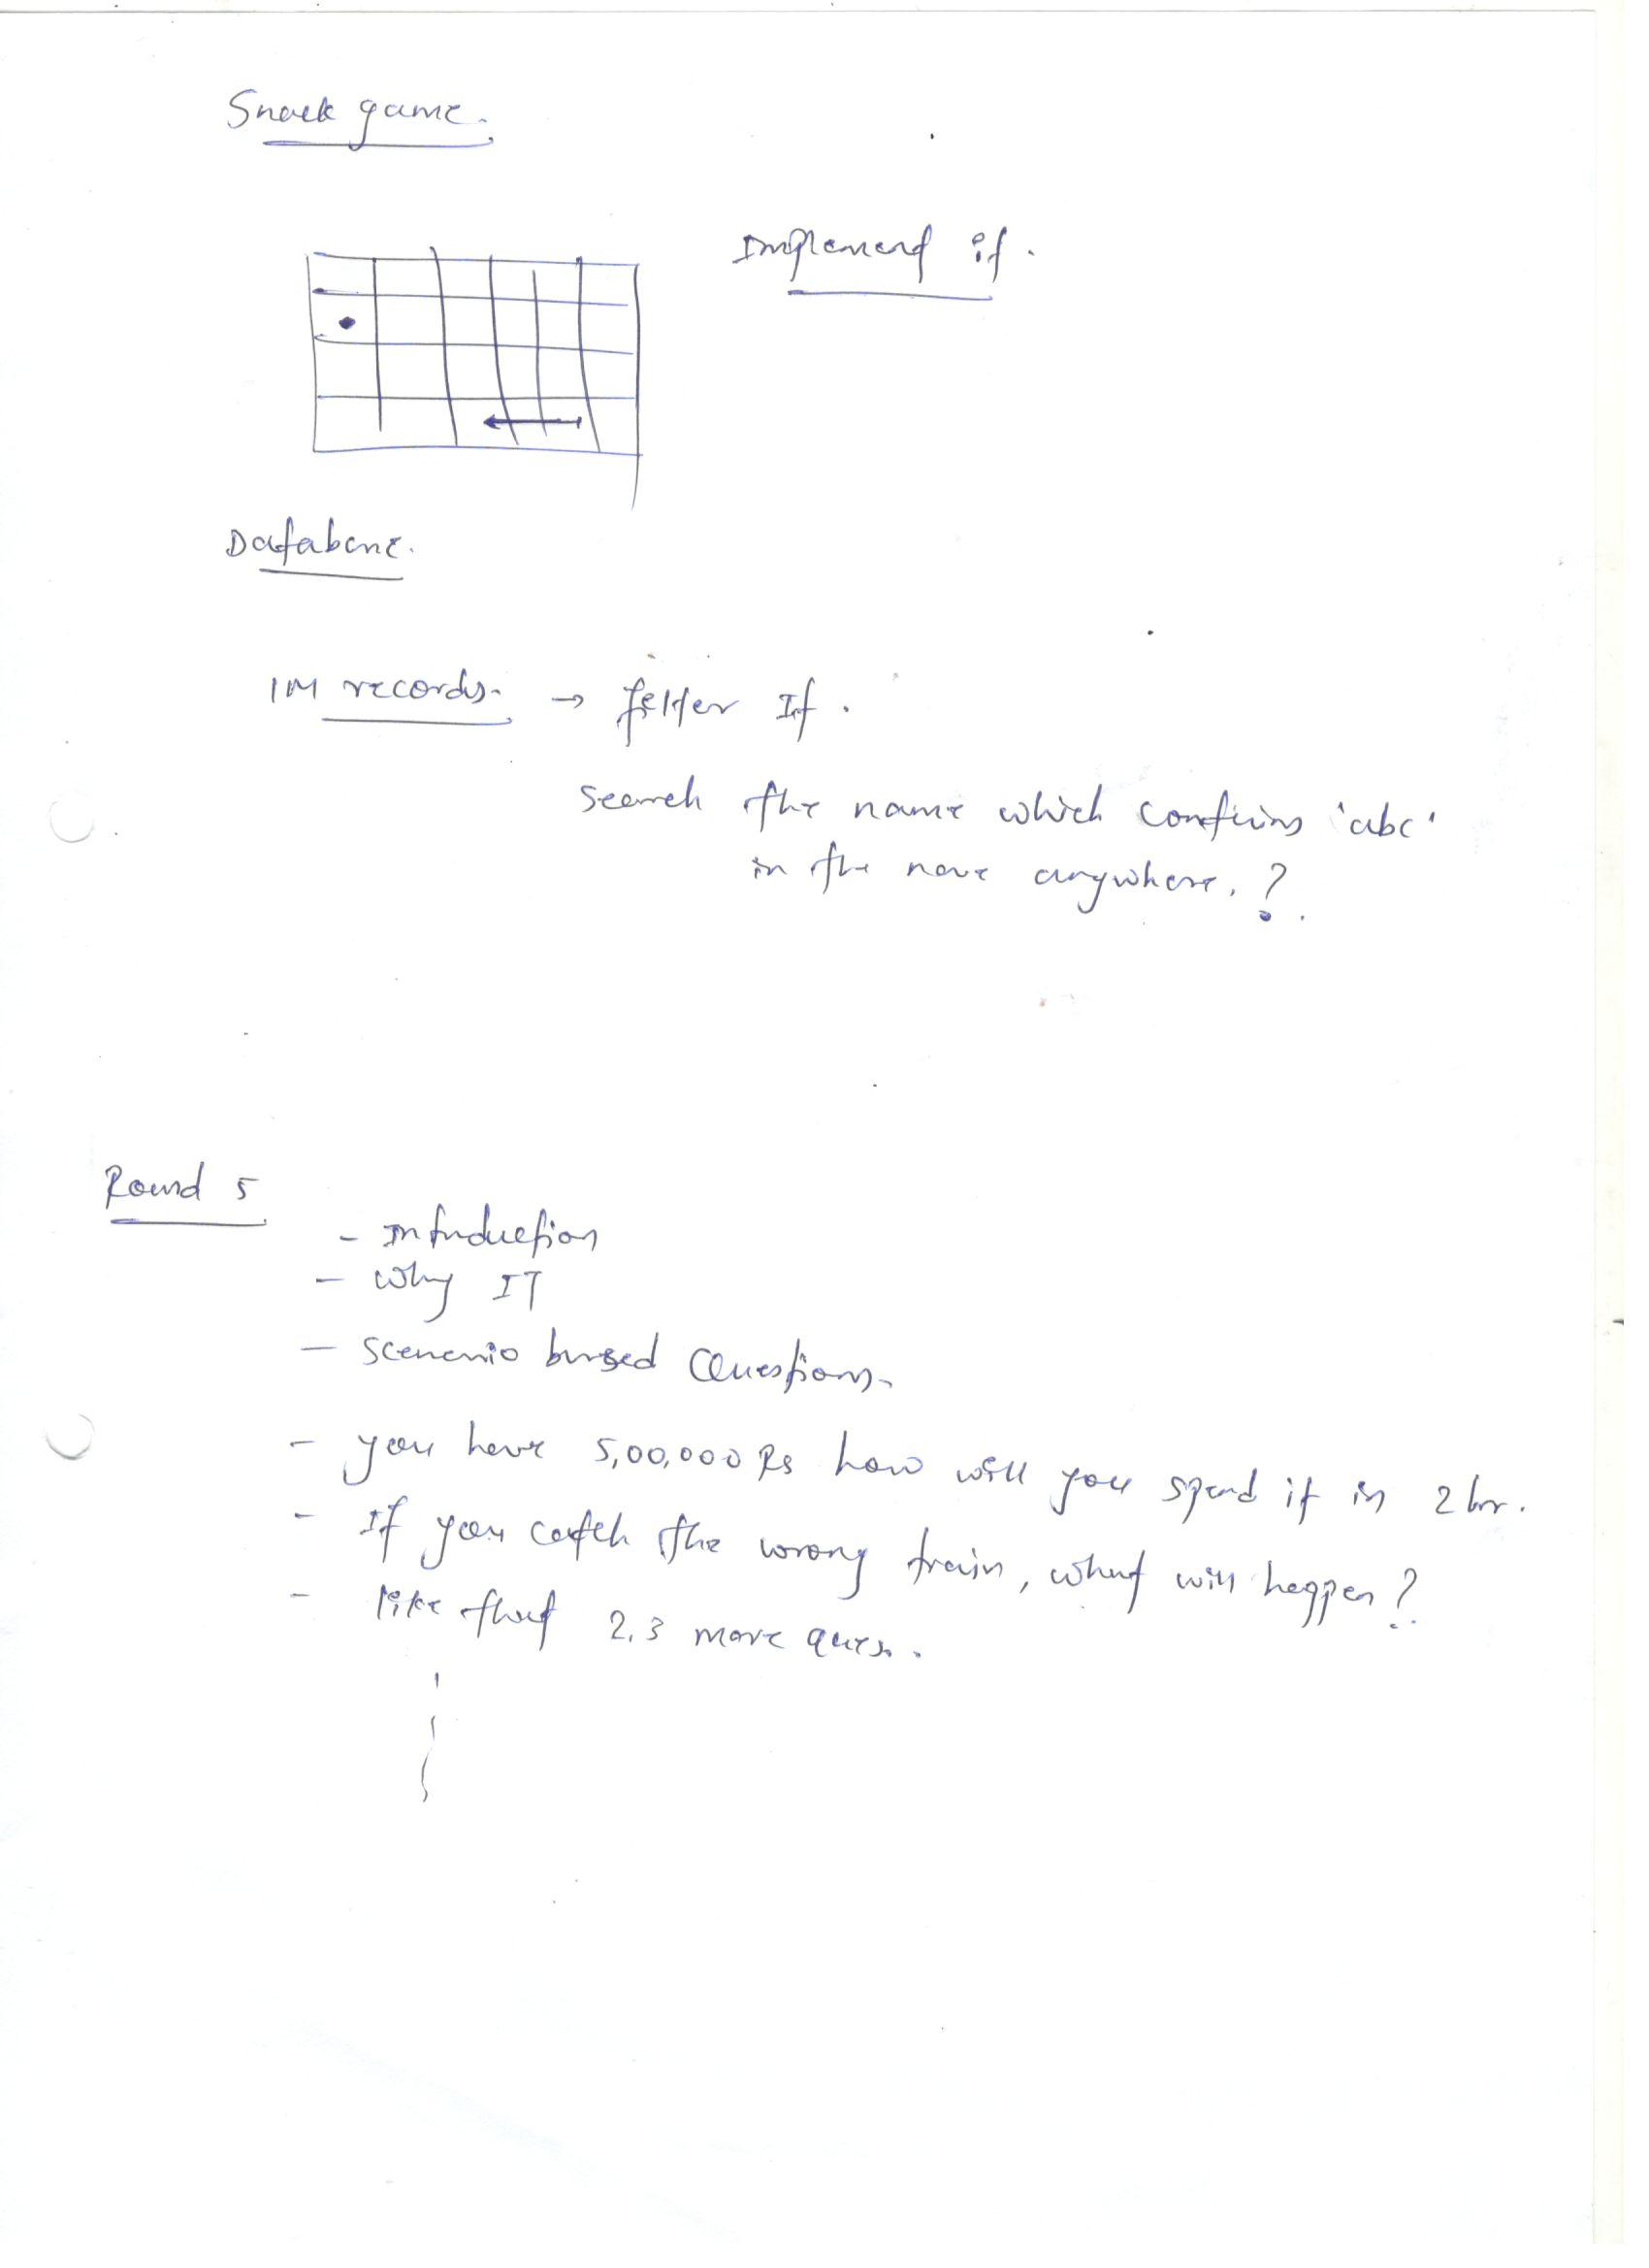 Snack game.
Implement it.
Database.
1M records. → felter It.
search the name which contins 'abc'
in the name anywhere. ?
Round 5
- Introduction
- why IT
- scenerio bused Questions.
- you have 5,00,000 Rs how will you spend it in 2 hr.
- If you catch the wrong train, what will happen?
- like that 2,3 more ques.